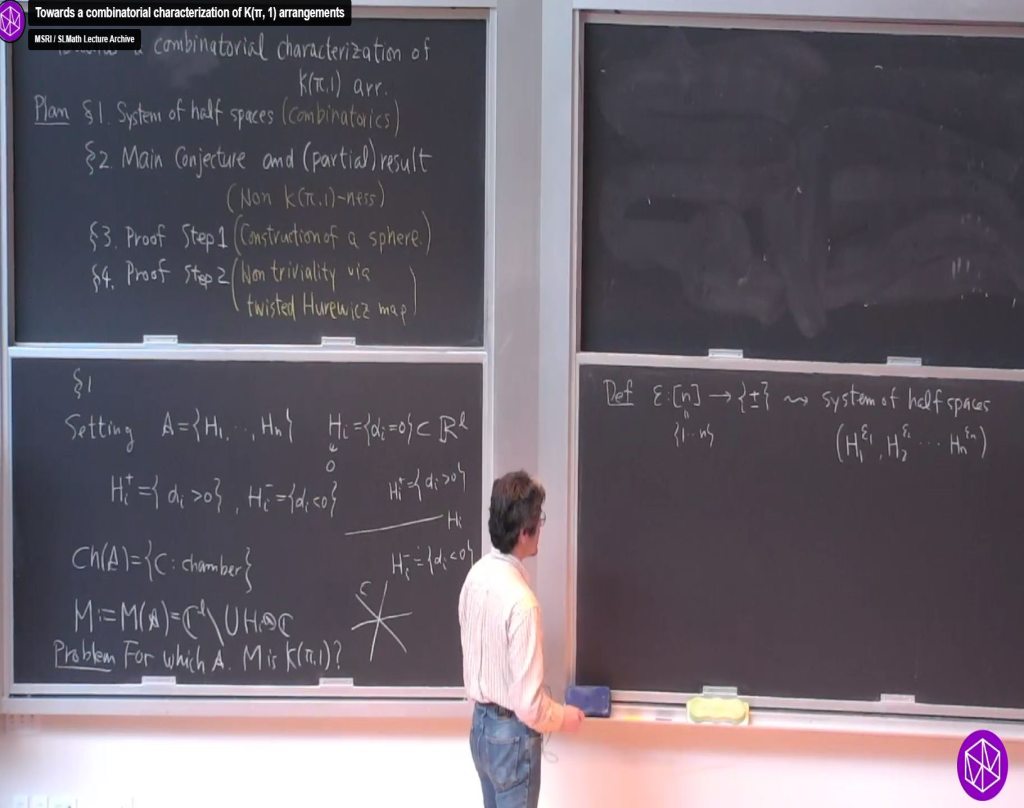 Towards a combinatorial characterization of K(π, 1) arrangements
MSRI / SLMath Lecture Archive
a combinatorial characterization of
K(π,1) arr.
Plan §1. System of half spaces (combinatorics)
§2. Main Conjecture and (partial) result
(Non K(π,1)-ness)
§3. Proof Step 1 (Construction of a sphere.)
§4. Proof Step 2 (Non triviality via
twisted Hurewicz map)
§1
Setting A={H₁,..,Hn} Hi={αi=0}⊂ℝˡ
0
Hi⁺={αi>0}, Hi⁻={αi<0}
Hi⁺={αi>0}
Hi
Hi⁻={αi<0}
Ch(A)={C: chamber}
C
M:=M(A)=ℂˡ\∪Hi⊗ℂ
Problem For which A. M is K(π,1)?
Def ε:[n]→{±} ⇝ system of half spaces
{1..n}
(H₁^ε₁, H₂^ε₂ ⋯ Hn^εn)